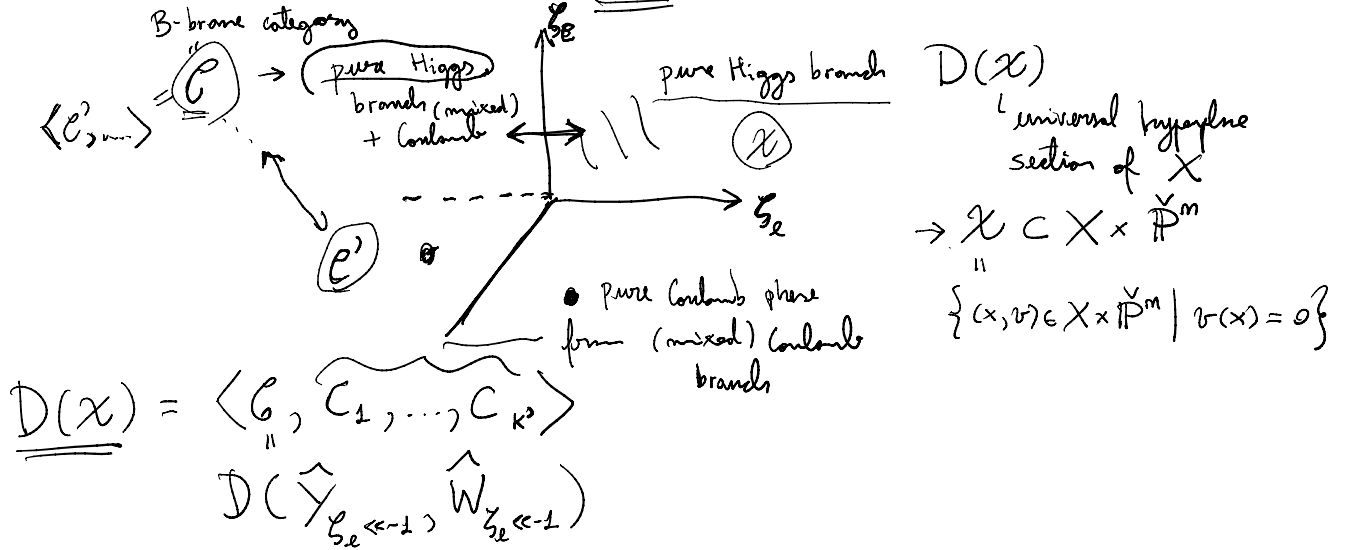 B-brane category
𝒞 → pure Higgs
branch (mixed)
+ Coulomb
⟨𝒞', ...⟩ =
𝒞'
ζ_ℓ
pure Higgs branch
𝒳
D(𝒳)
universal hyperplane
section of X
→ 𝒳 ⊂ X × P̌ⁿ
=
{(x,v) ∈ X × P̌ⁿ | v(x) = 0}
• pure Coulomb phase
from (mixed) Coulomb
branch
D(𝒳) = ⟨𝒞, C₁, ..., C_k'⟩
=
D(Ŷ_{ζ_ℓ ≪ -1}, Ŵ_{ζ_ℓ ≪ -1})